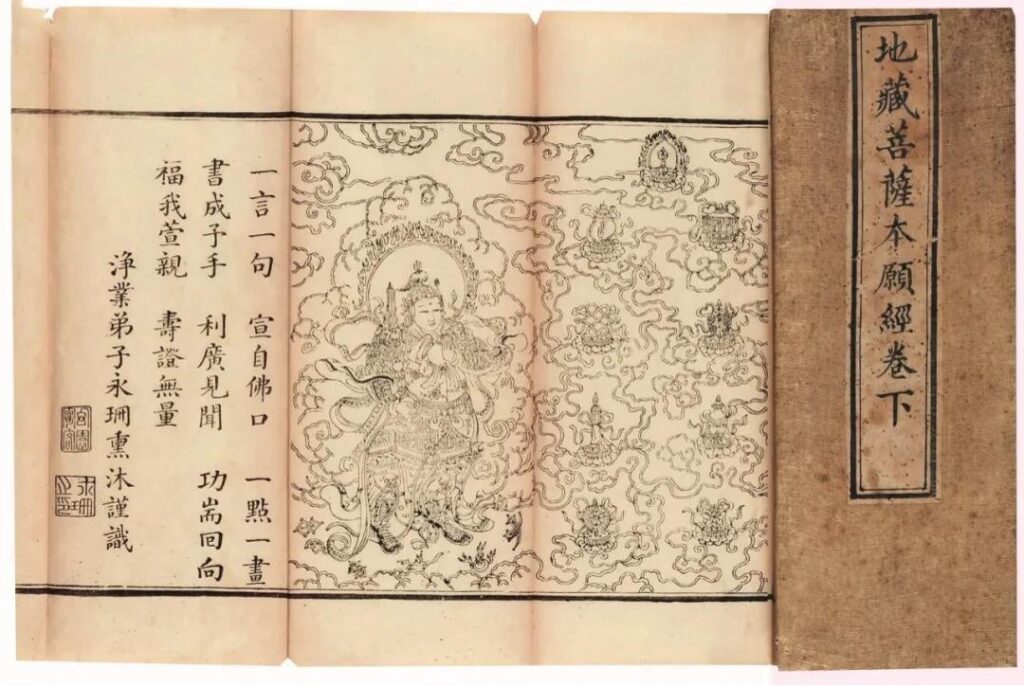 地藏菩薩本願經卷下
一言一句 宣自佛口 一點一畫
書成予手 利廣見聞 功耑回向
福我萱親 壽證無量
淨業弟子永珊熏沐謹識
永珊之印